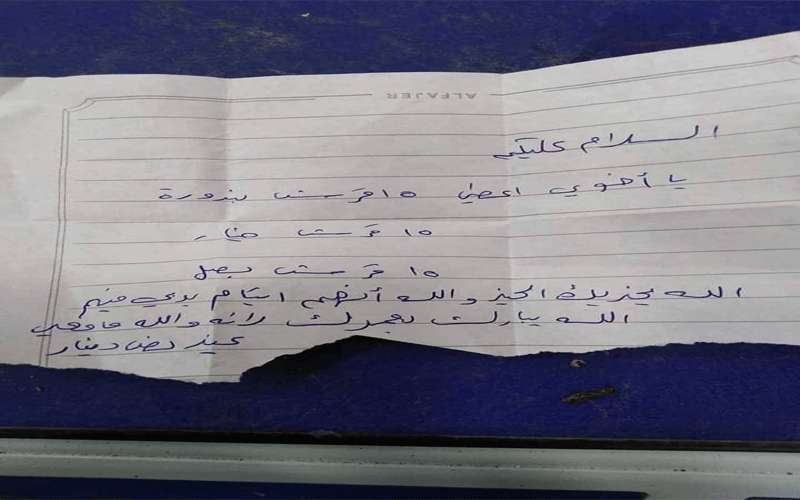 ALFAJER
السلام عليكم
يا أخوي اعطني ١٥ قرش بندورة
١٥ قرش خيار
١٥ قرش بصل
الله يجزيك الخير والله أنهم ايتام بدي منهم
الله يبارك بعمرك لانه والله مامعي
غير نص دينار